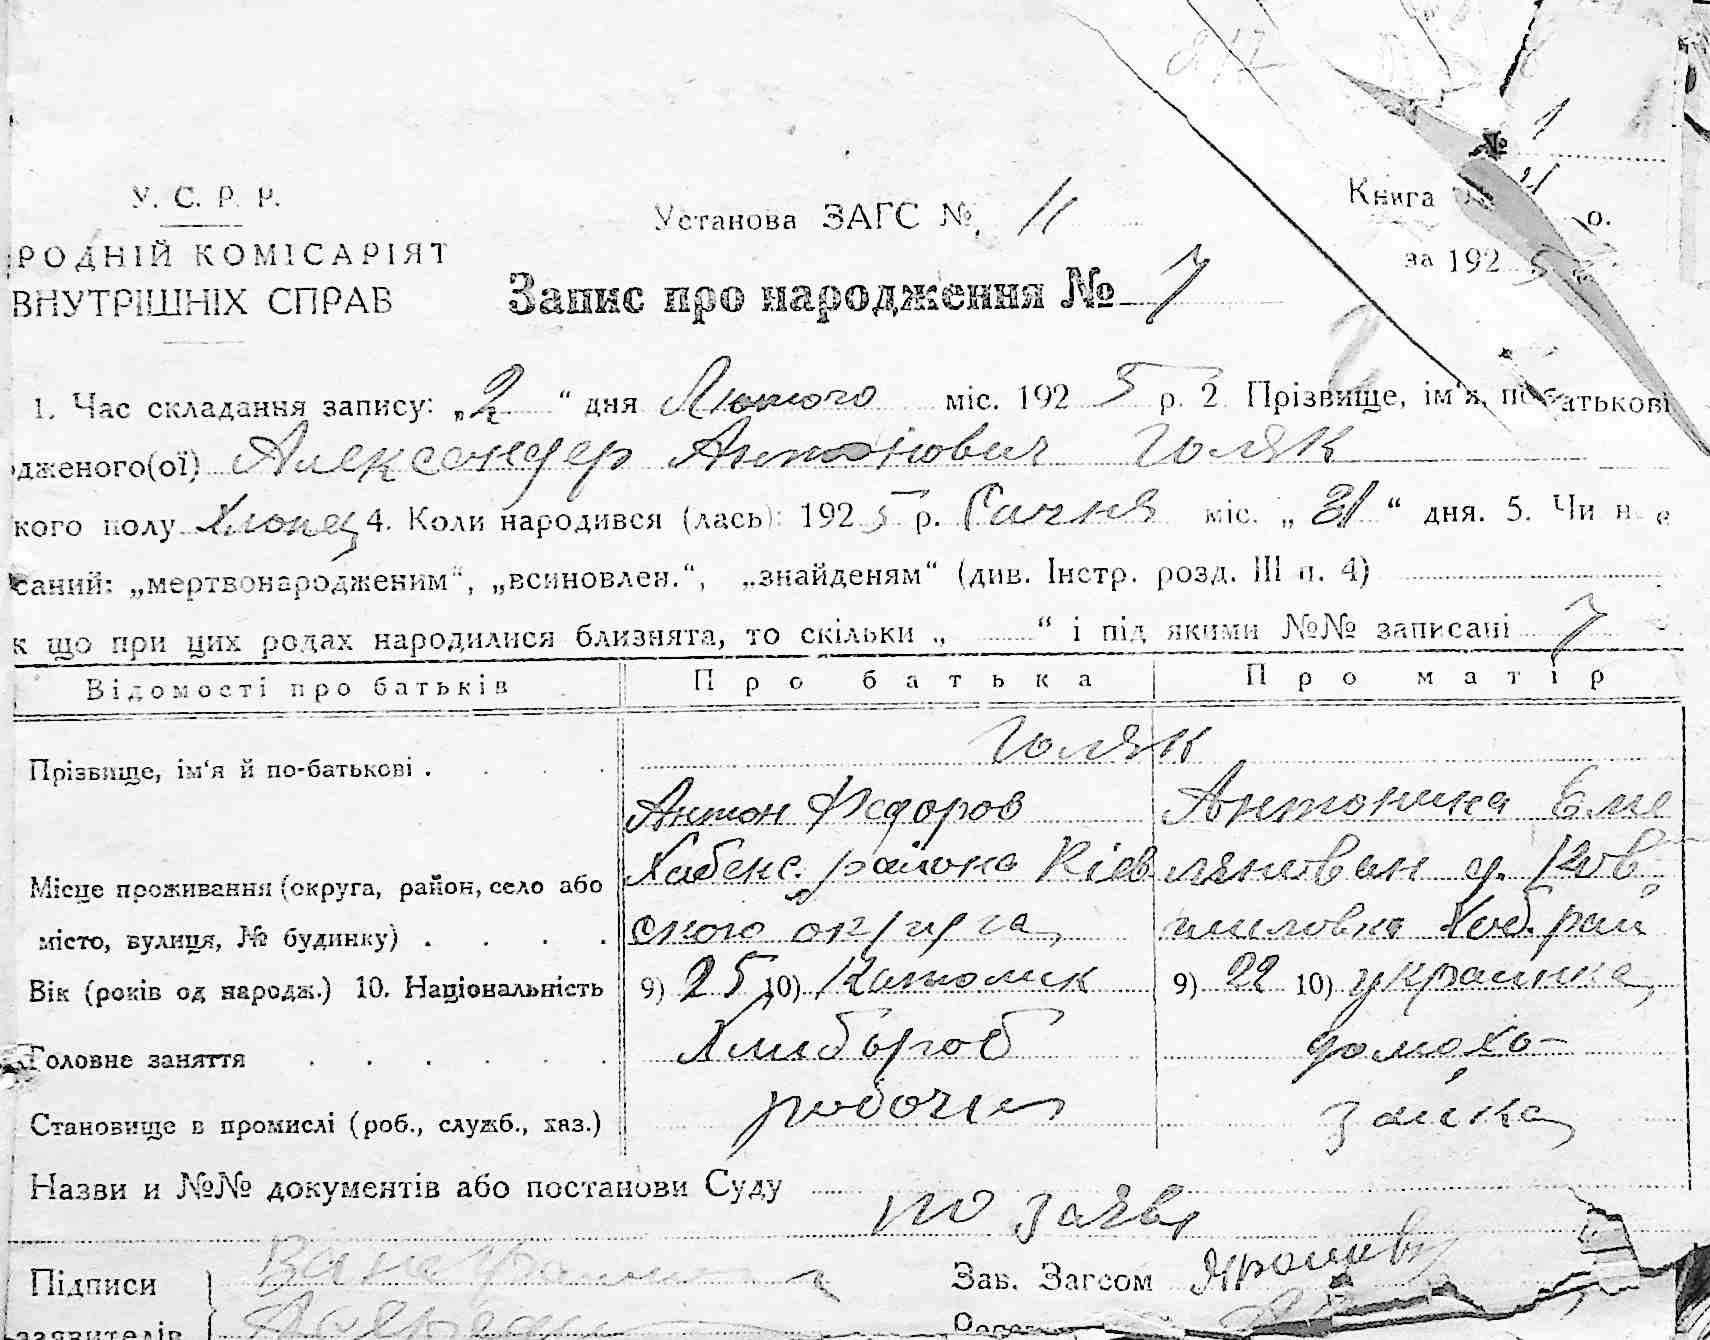 У. С. Р. Р.
РОДНІЙ КОМІСАРІЯТ
ВНУТРІШНІХ СПРАВ
Установа ЗАГС № 11
Книга №
о.
за 1925
Запис про народження № 7
1. Час складання запису: „2“ дня Лютого міс. 1925 р. 2 Прізвище, ім'я, по батькові
дженого(ої) Александер Антонович Голяк
кого полу Хлопец 4. Коли народився (лась) 1925 р. Січня міс. „31“ дня. 5. Чи н е
саний: „мертвонародженим“, „всиновлен.“, „знайденям“ (див. Інстр. розд. III п. 4)
к що при цих родах народилися близнята, то скільки „ “ і під якими №№ записані 7
Відомості про батьків Про батька Про матір
Голяк
Прізвище, ім'я й по-батькові .
Антон Федоров Антонина Еме
Місце проживання (округа, район, село або Хабенс. района Кіев
місто, вулиця, № будинку) . . . . ского округа
Вік (років од народж.) 10. Національність 9) 25 10) Католик 9) 22 10) украинка
Головне заняття . . . . . . Хлибороб домохо-
Становище в промислі (роб., служб., хаз.) робочий зайка
Назви и №№ документів або постанови Суду по заяві
Підписи Зав. Загсом
заявителів